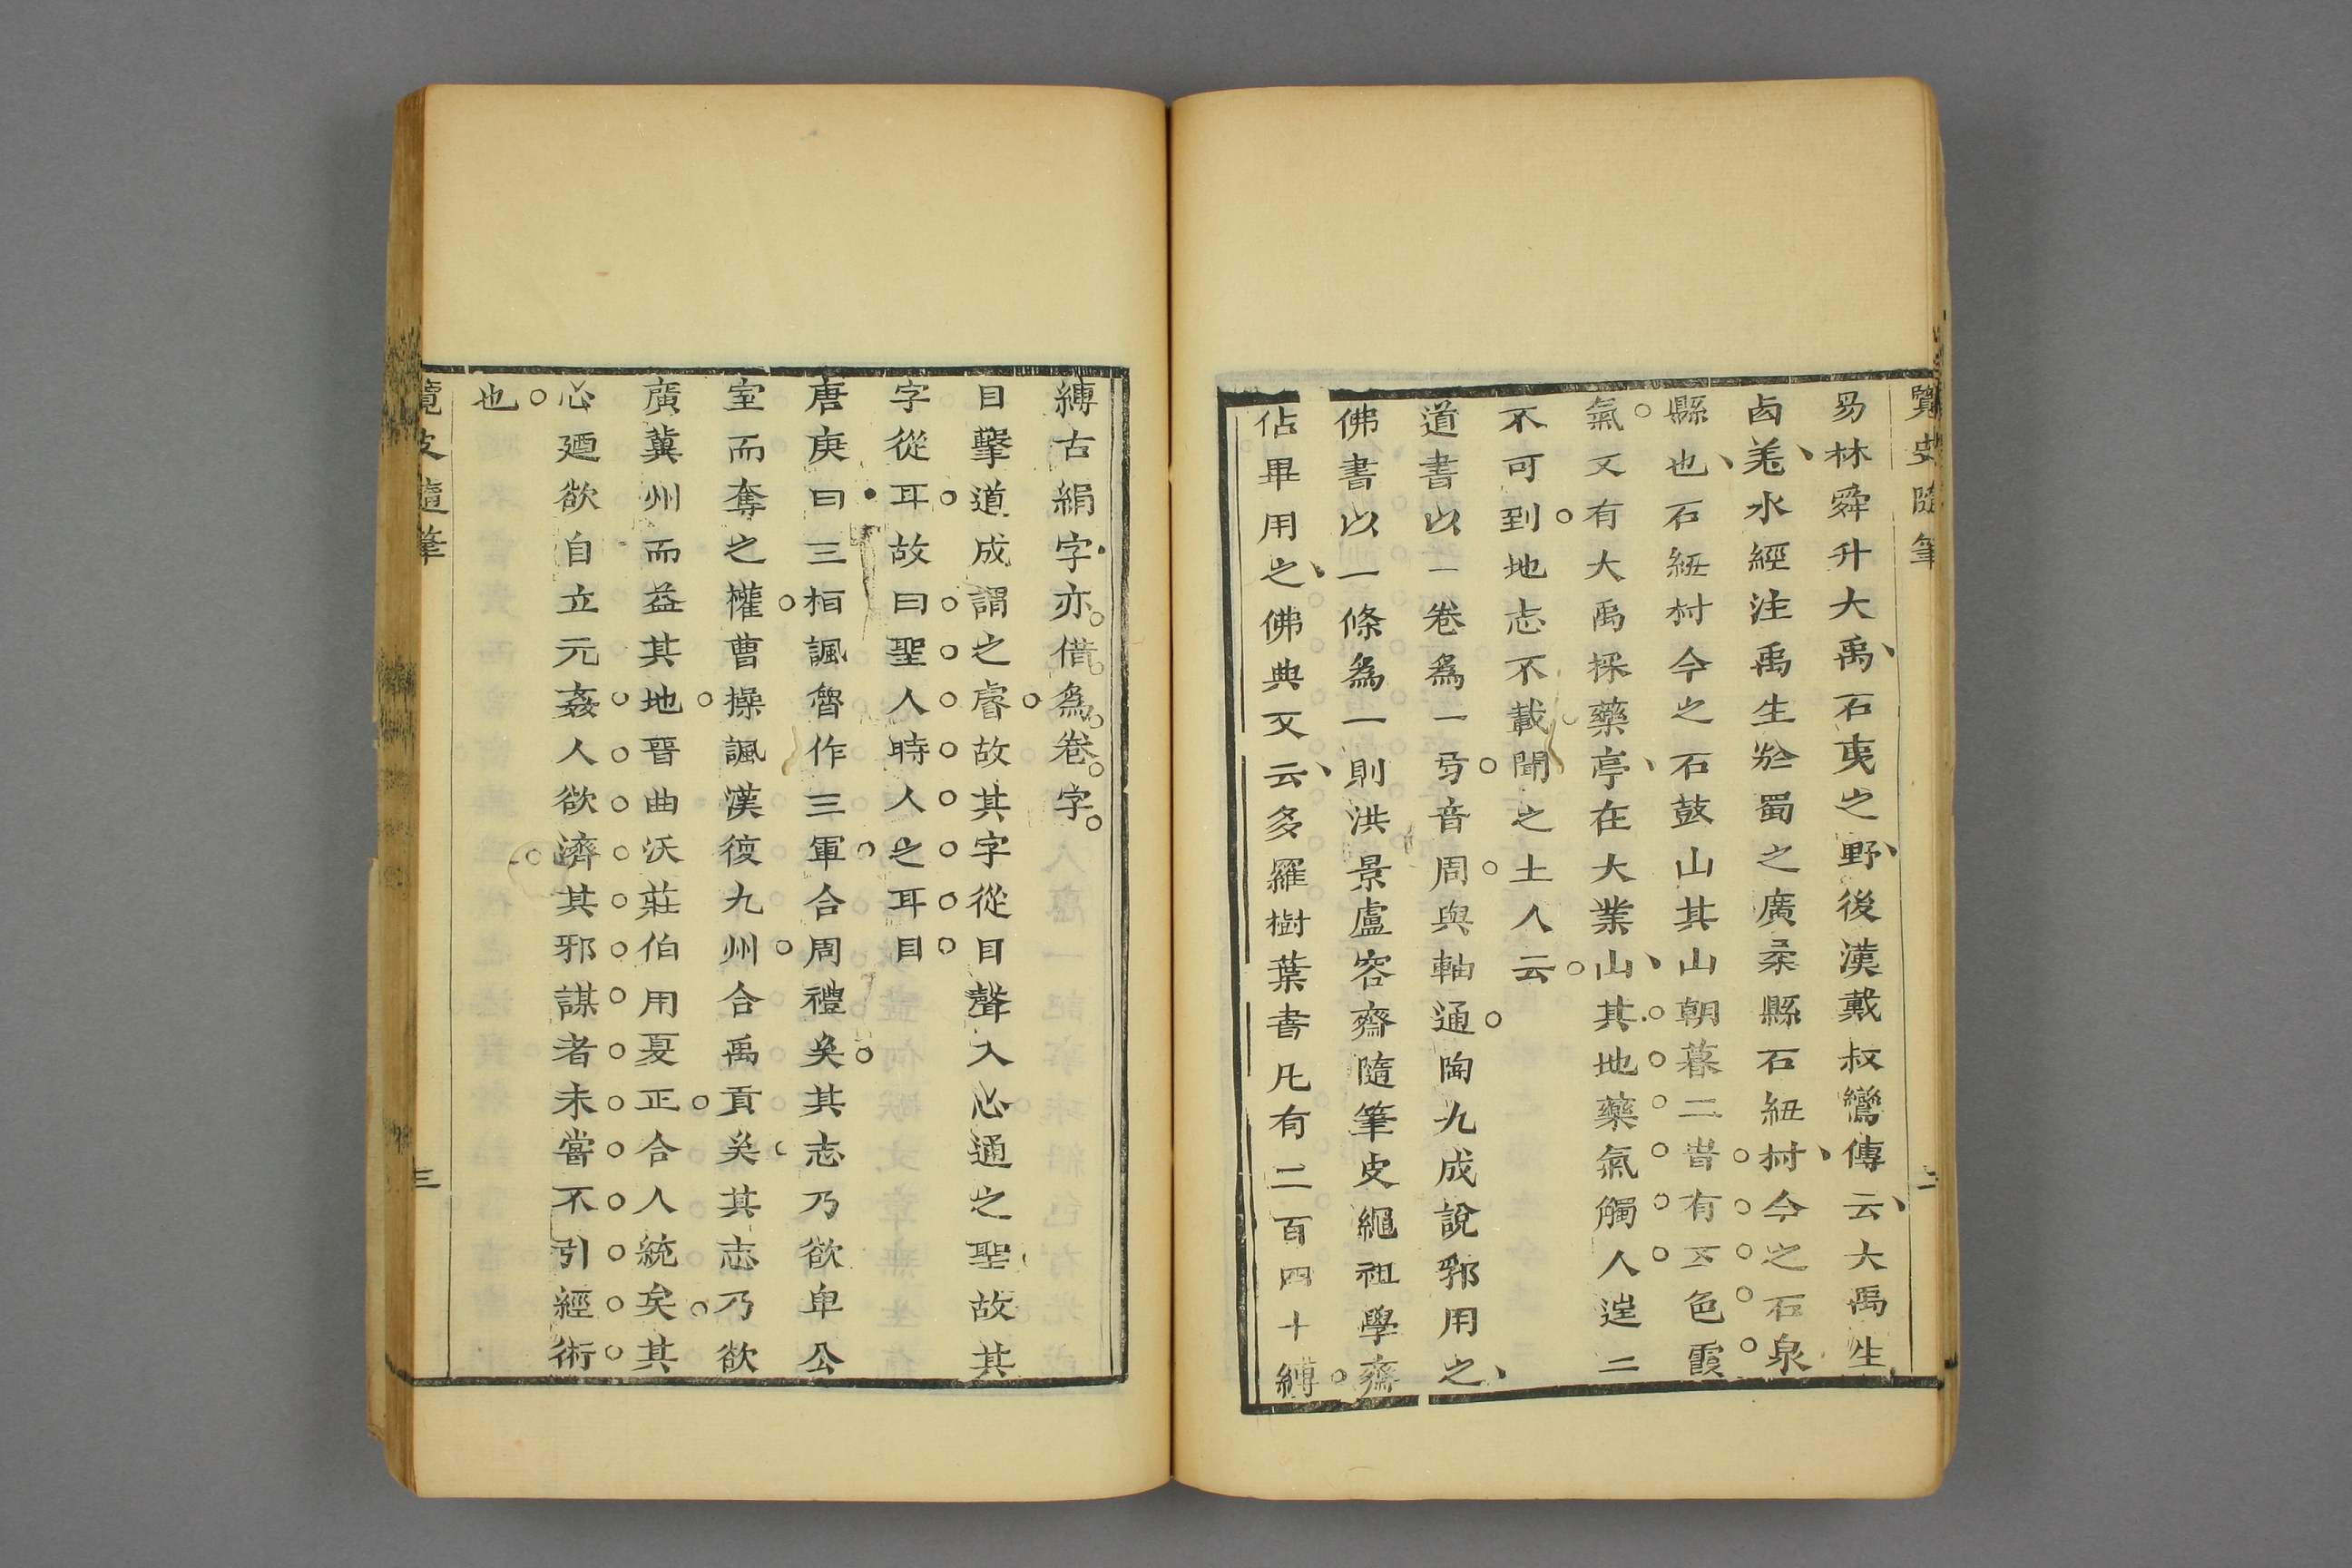 覽史隨筆
易林舜升大禹石夷之野後漢戴叔鸞傳云大禹生
西羌水經注禹生於蜀之廣柔縣石紐村今之石泉
縣也石紐村今之石鼓山其山朝暮二時有五色霞
氣又有大禹採藥亭在大業山其地藥氣觸人逞二
不可到地志不載聞之土人云
道書以一卷爲一弓音周與軸通陶九成說郛用之
佛書以一條爲一則洪景盧容齋隨筆史繩祖學齋
佔畢用之佛典又云多羅樹葉書凡有二百四十縛
二
縛古絹字亦借爲卷字
目擊道成謂之睿故其字從目聲入心通之聖故其
字從耳故曰聖人時人之耳目
唐庚曰三桓諷魯作三軍合周禮矣其志乃欲卑公
室而奪之權曹操諷漢復九州合禹貢矣其志乃欲
廣冀州而益其地晉曲沃莊伯用夏正合人統矣其
心廼欲自立元姦人欲濟其邪謀者未嘗不引經術
也
覽史隨筆
三